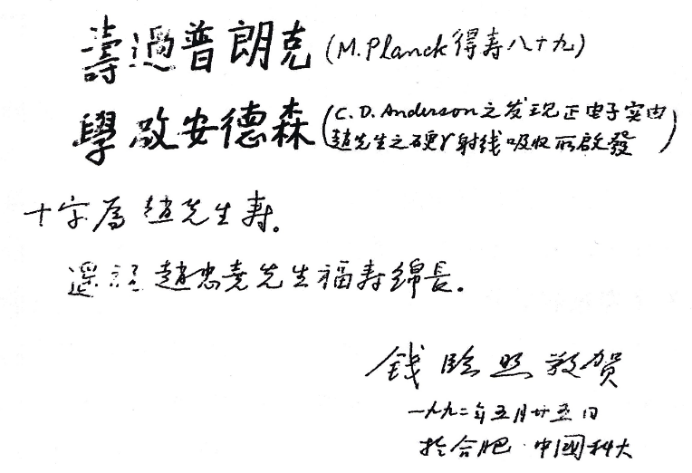 壽過普朗克 (M.Planck 得寿八十九)
學啟安德森 (C.D.Anderson之发现正电子实由
趙先生之硬γ射线吸收所啟發)
十字為趙先生寿。
遥祝趙忠堯先生福寿綿長。
钱臨照敬贺
一九九二年五月廿五日
於合肥·中國科大